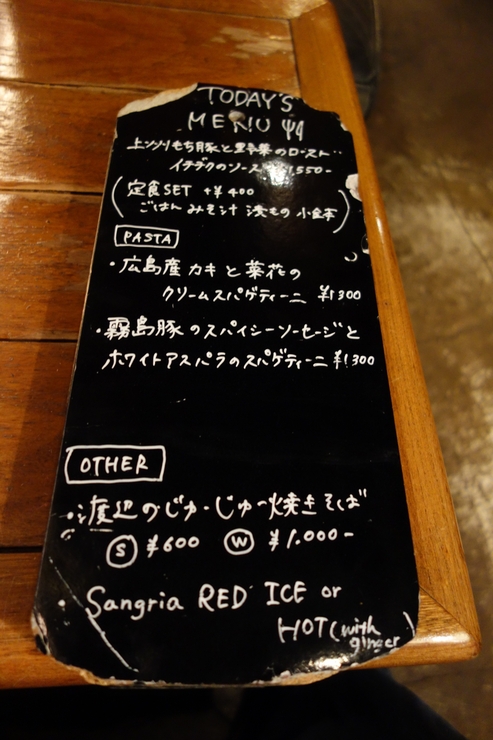 TODAY'S
MENU
上ツリもち豚と野菜のロースト
イチヂクのソース ¥1,550-
(定食SET +¥400
ごはん みそ汁 漬もの 小鉢)
PASTA
・広島産カキと菜花の
クリームスパゲティーニ ¥1300
・霧島豚のスパイシーソーセージと
ホワイトアスパラのスパゲティーニ ¥1300
OTHER
・渡辺のじゅーじゅー焼きそば
S ¥600 W ¥1.000-
・Sangria RED ICE or
HOT (with
ginger)